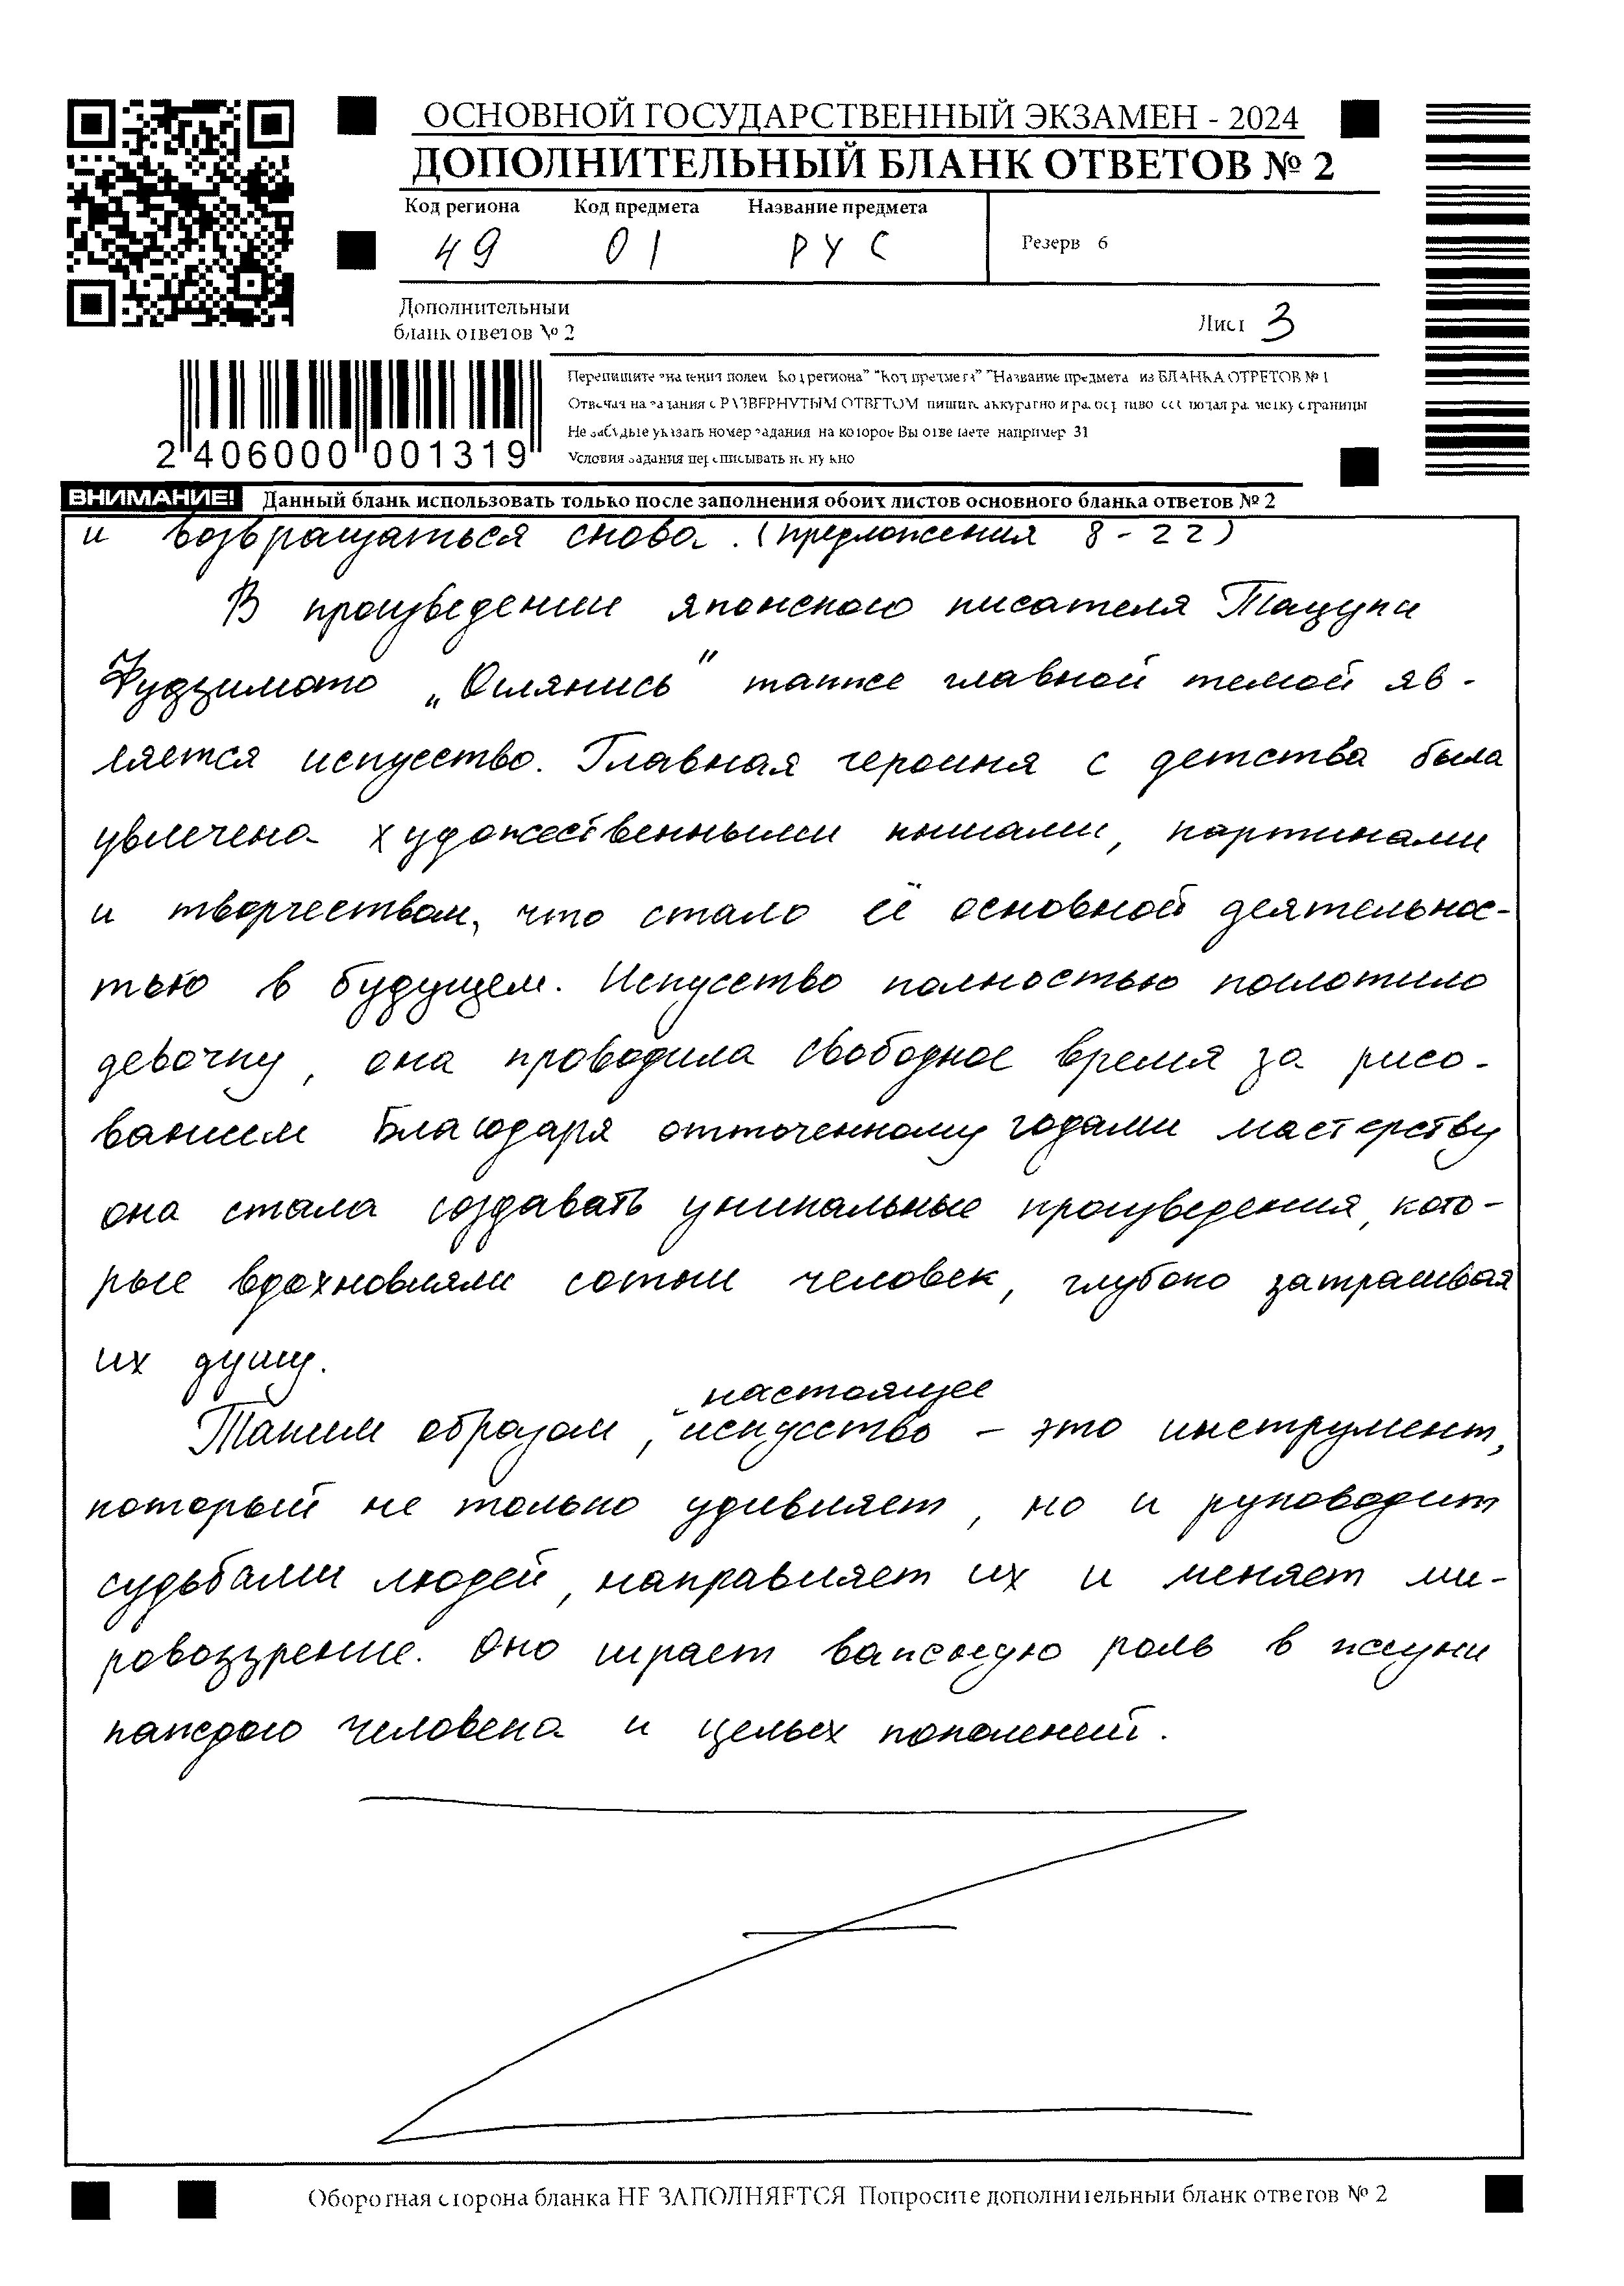 ОСНОВНОЙ ГОСУДАРСТВЕННЫЙ ЭКЗАМЕН - 2024
ДОПОЛНИТЕЛЬНЫЙ БЛАНК ОТВЕТОВ № 2
Код региона Код предмета Название предмета
49 01 РУС
Резерв 6
Дополнительный
бланк ответов № 2
Лист 3
Перепишите значения полей "Код региона" "Код предмета" "Название предмета" из БЛАНКА ОТВЕТОВ № 1
Отвечая на задания с РАЗВЕРНУТЫМ ОТВЕТОМ пишите аккуратно и разборчиво соблюдая разметку страницы
Не забудьте указать номер задания на которое Вы отвечаете например 31
Условия задания переписывать не нужно
2 406000 001319
ВНИМАНИЕ! Данный бланк использовать только после заполнения обоих листов основного бланка ответов № 2
и возвращаться снова. (предложения 8-22)
В произведении японского писателя Тацуки
Фудзимото „Оглянись" также главной темой яв-
ляется искусство. Главная героиня с детства была
увлечена художественными книгами, картинами
и творчеством, что стало её основной деятельнос-
тью в будущем. Искусство полностью поглотило
девочку, она проводила свободное время за рисо-
ванием Благодаря отточенному годами мастерству
она стала создавать уникальные произведения, кото-
рые вдохновляли сотни человек, глубоко затрагивая
их душу.
настоящее
Таким образом, искусство - это инструмент,
который не только удивляет, но и руководит
судьбами людей, направляет их и меняет ми-
ровоззрение. Оно играет важную роль в жизни
каждого человека и целых поколений.
Оборотная сторона бланка НЕ ЗАПОЛНЯЕТСЯ Попросите дополнительный бланк ответов № 2